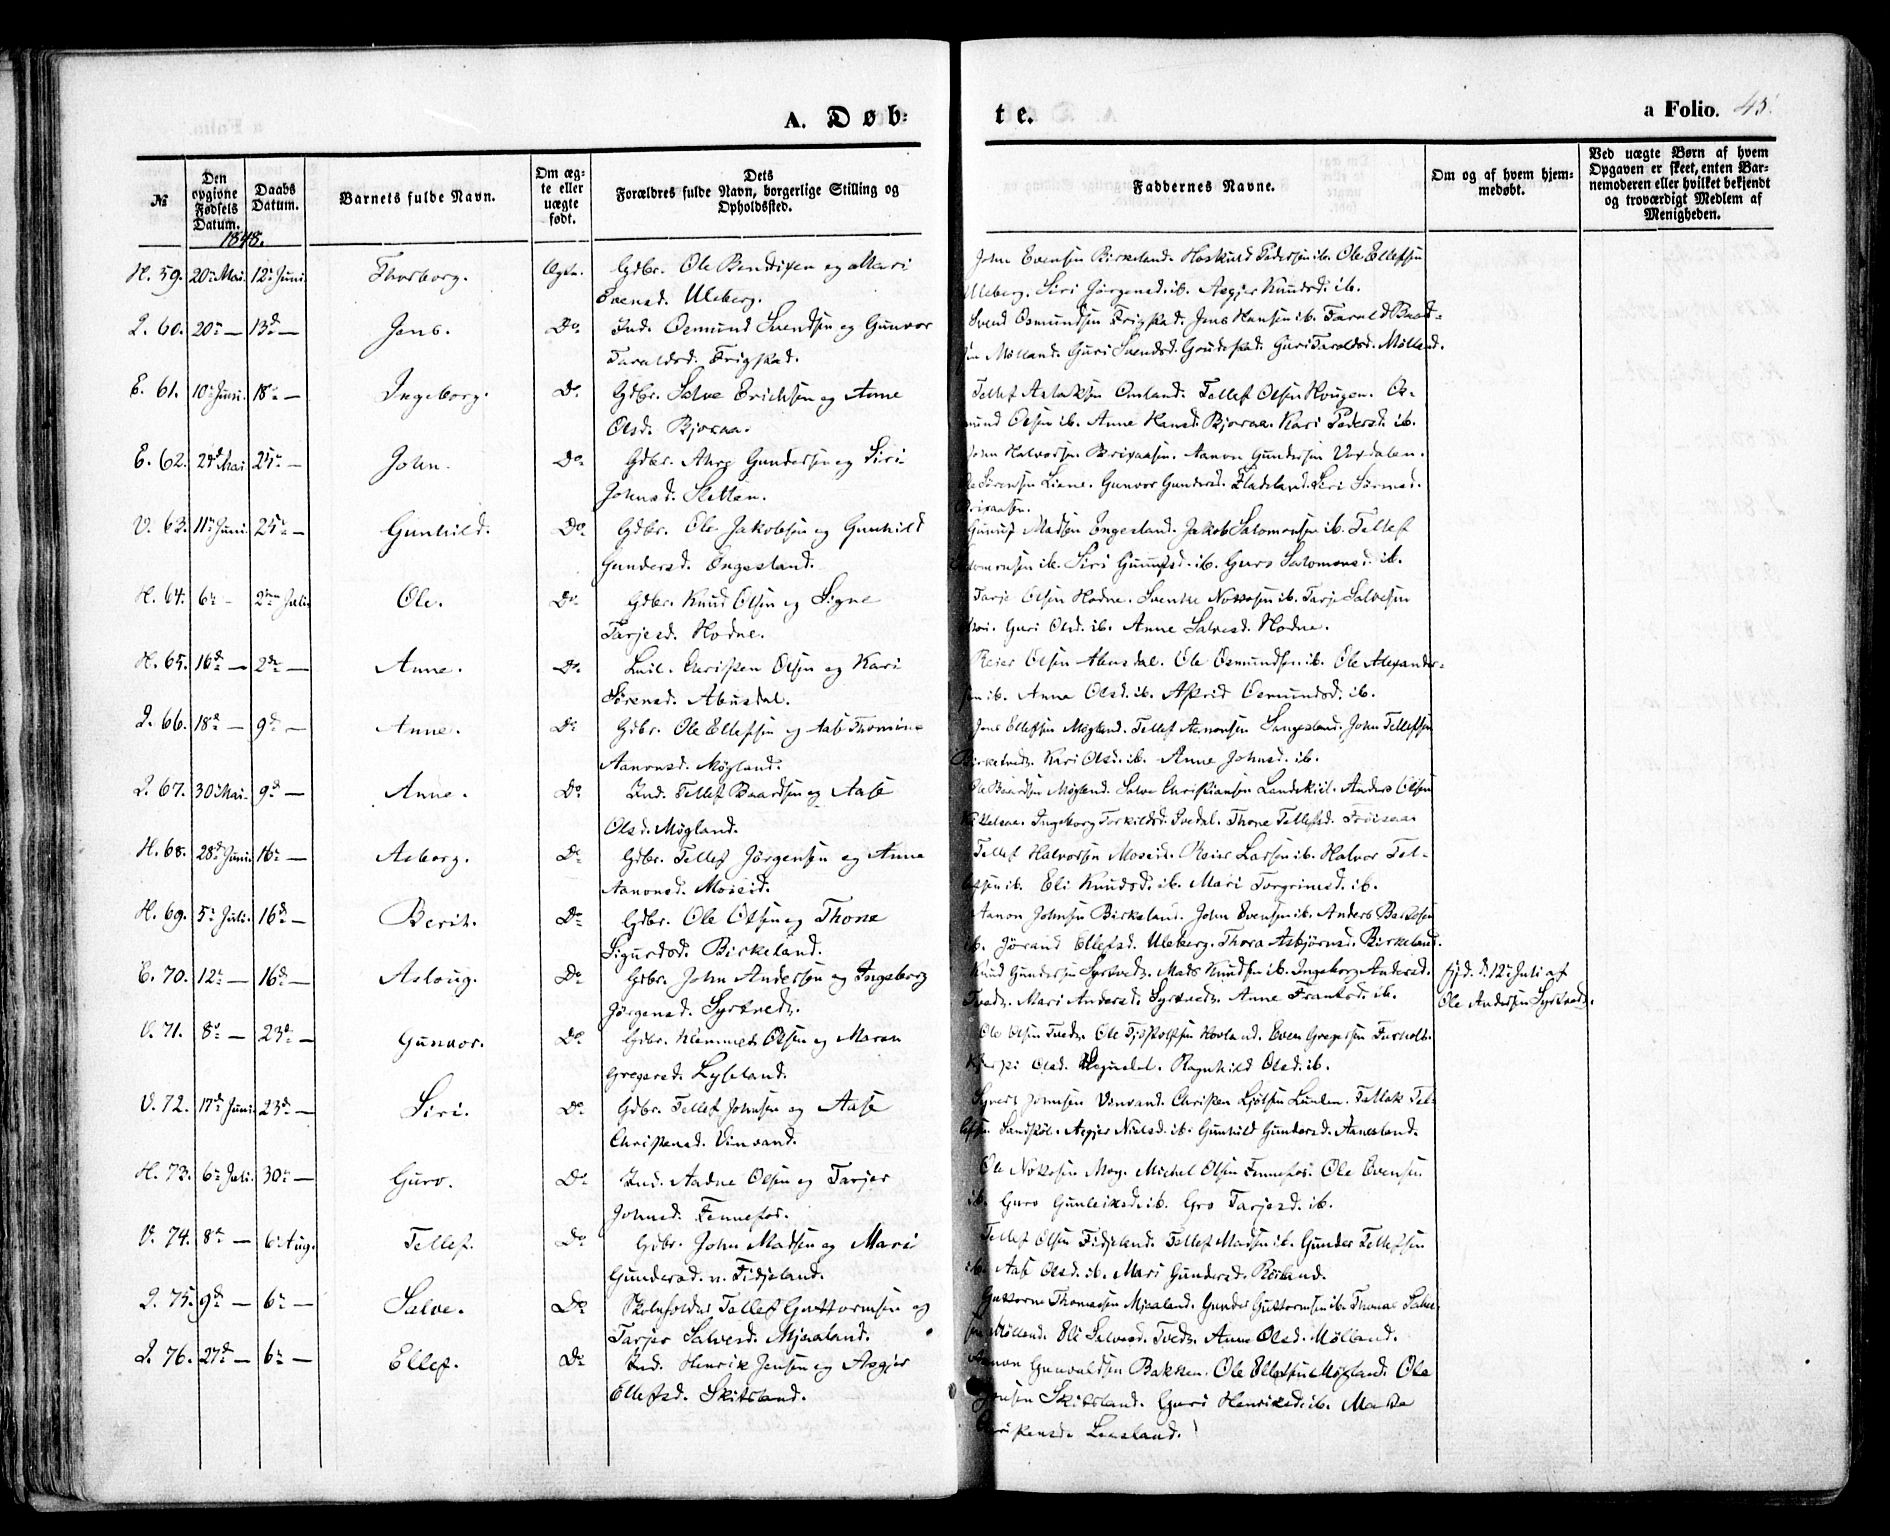 A. Døb-
te.
a Folio. 45.
№
Den opgivne Fødsels Datum.
Daabs Datum.
Barnets fulde Navn.
Om ægte eller uægte født.
Dets Forældres fulde Navn, borgerlige Stilling og Opholdssted.
Faddernes Navne.
Om og af hvem hjemmedøbt.
Ved uægte Børn af hvem Opgaven er skeet, enten Barnemoderen eller hvilket bekjendt og troværdigt Medlem af Menigheden.
1848.
H. 59. 20 Mai. 12 Juni. Thorborg. Ægte. Gdbr. Ole Bendixen og Mari
Evensd. Uleberg.
John Evensen Birkeland. Hoskuld Pedersen ib. Ole Ellefsen
Uleberg. Siri Jørgensd. ib. Asgjer Knudsd. ib.
I. 60. 20 — 13d — Jens. Do. Ind. Osmund Svendsen og Gunvor
Taraldsd. Frigstad.
Svend Osmundsen Frigstad. Jens Hansen ib. Tarald Baard-
sen Mølland. Guri Svendsd. Guri Taraldsd. Mølland.
E. 61. 10 Juni. 18 — Ingeborg. Do. Gdbr. Salve Erichsen og Anne
Olsd. Bjoraa.
Tellef Aslaksen Omland. Tellef Olsen Hougen. Os-
mund Olsen ib. Anne Hansd. Bjoraa. Kari Pedersd. ib.
E. 62. Mai 25 — John. Do. Gdbr. Gundersen og Siri
Johnsd. Sletten.
John Halvorsen Brixaasen. Aanon Gundersen Voxdalen.
Sørensen Liane. Gunvor Gundersd. Fladeland. Siri Sørensd.
Brixaasen.
V. 63. 11 Juni. 25 — Gunhild. Do. Gdbr. Ole Jakobsen og Gunhild
Gundersd. Engesland.
Gunuf Madsen Engesland. Jakob Salomonsen ib. Tellef
Salomonsen ib. Siri Gunufsd. ib. Guro Salomonsd. ib.
H. 64. 6 — 2 Juli. Ole. Do. Gdbr. Knud Olsen og Signe
Tarjesd. Hodne.
Tarje Olsen Hodne. Svenke Notosen ib. Tarje Salvesen
Guri Olsd. ib. Anne Salvesd. Hodne.
H. 65. 16d — 2 — Anne. Do. Christen Olsen og Kari
Sørensd. Abusdal.
Reier Olsen Abusdal. Ole Osmundsen ib. Ole Alexander-
sen ib. Anne Olsd. ib. Astrid Osmundsd. ib.
I. 66. 18 — 9d — Anne. Do. Gdbr. Ole Ellefsen og Thomine
Aanonsd. Møgland.
Jens Ellefsen Møgland. Tellef Aanonsen Sangesland. John Tellefsen
Birketvedt. Kari Olsd. ib. Anne Johnsd. ib.
I. 67. 30 Mai. 9d — Anne. Do. Ind. Tellef Baardsen og Aase
Olsd. Møgland.
Ole Baardsen Møgland. Salve Christiansen Landskiil. Anders Olsen
Ingeborg Torkildsd. Ivedal. Thone Tellefsd. Frøisaa.
H. 68. 28d Juni. 16 — Asborg. Do. Gdbr. Tellef Jørgensen og Anne
Aanonsd. Moseid.
Tellef Halvorsen Moseid. Reier Larsen ib. Halvor Tel-
lefsen ib. Eli Knudsd. ib. Mari Torgrimsd. ib.
H. 69. 5 Juli. 16d — Berit. Do. Gdbr. Ole Olsen og Thone
Sigurdsd. Birkeland.
Aanon Johnsen Birkeland. John Evensen ib. Anders
ib. Jørand Ellefsd. Uleberg. Thora Asbjørnsd. Birkeland.
E. 70. 12 — 16d — Asloug. Do. Gdbr. John Andersen og Ingeborg
Jørgensd. Syrtvedt.
Knud Gundersen Syrtvedt. Mads Knudsen ib. Ingeborg Andersd.
Tvedt. Mari Andersd. Syrtvedt. Anne Frantsd. ib.
hjd. d. 12 Juli af
Ole Andersen Syrtvedt.
V. 71. 8 — 23d — Gunvor. Do. Gdbr. Klemmet Olsen og Maren
Gregersd. Lyseland.
Ole Olsen Tvedt. Ole Hovland. Even Gregersen Furholt.
Olsd. Ragnhild Olsd. ib.
V. 72. 17d Juni. 23d — Siri. Do. Gdbr. Tellef Johnsen og Aase
Christensd. Vinvand.
Syvert Johnsen Vinvand. Christen Ljølsen Lunden. Tel-
lefsen Landskiil. Asgjer Nielsd. ib. Gunhild Gundersd. Aanesland.
H. 73. 6 Juli. 30 — Guro. Do. Ind. Aadne Olsen og Tarjer
Johnsd. Fennefos.
Ole Notosen Moy. Michel Olsen Fennefos. Ole Evensen
ib. Guro Gunleiksd. ib. Gro Tarjesd. ib.
V. 74. 8 — 6 Aug. Tellef. Do. Gdbr. John Madsen og Mari
Gundersd. n. Fidjeland.
Tellef Olsen Fidjeland. Tellef Madsen ib. Gunder Tellefsen
ib. Aase Olsd. ib. Mari Gundersd. Reiland.
I. 75. 9d — 6 — Salve. Do. Skoleholder Tellef Guttormsen og
Tarjer Salvesd. Mjaaland.
Guttorm Thomassen Mjaaland. Gunder Guttormsen ib. Thomas Salve-
sen Mølland. Eli Salvesd. Tvedt. Anne Olsd. Mølland.
I. 76. 27d — 6 — Ellef. Do. Ind. Henrik Jensen og Asgjer
Ellefsd. Skitsland.
Aanon Gunvaldsen Bakken. Ole Ellefsen Møgland. Ole
Jensen Skitsland. Guri Henriksd. ib.
Christensd.